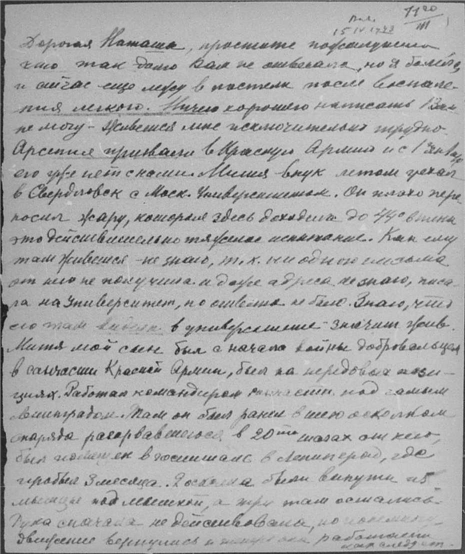 11 20/III
15 IV 1943
Дорогая Наташа, простите пожалуйста
что так долго Вам не отвечала, но я болела
и сейчас ещё лежу в постели после воспале-
ния легкого. Ничего хорошего написать Вам
не могу - живется мне исключительно трудно.
Арсения призвали в Красную Армию и с 1
его уже нет с нами. Митя внук летом уехал
в Свердловск с Моск. Университетом. Он плохо пере
носил жару, которая здесь доходила до 74° в тени
это действительно тяжелое испытание. Как ему
там живется - не знаю, т. к. ни одного письма
от него не получила и даже адреса не знаю, писа
ла на университет, но ответа не было. Знаю, что
его там в университете - значит жив.
Митя мой сын был с начала войны добровольцем
в санчасти Красной Армии, был на передовых пози-
циях. Работал командиром под самым
Ленинградом. Там он был ранен в шею осколком
снаряда разорвавшегося в 20ти шагах от него,
был помещен в госпиталь в Ленинград, где
пробыл 3 месяца. Осколка были вынуты из
мышцы под мышкой, а три там остались.
Рука сначала не действовала, но
движение вернулось и работает